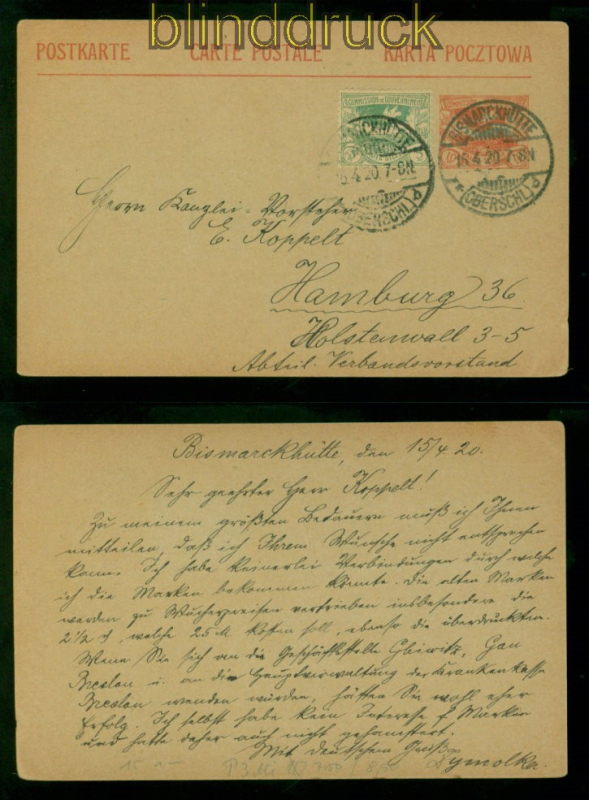 blinddruck
POSTKARTE CARTE POSTALE KARTA POCZTOWA
COMMISSION DE GOUVERNEMENT
BISMARCKHÜTTE
15.4.20.7-8N
(OBERSCHL)
BISMARCKHÜTTE
15.4.20.7-8N
(OBERSCHL)
Herrn Kanzlei-Vorsteher
E. Koppelt
Hamburg 36
Holstenwall 3-5
Abteil. Verbandsvorstand
Bismarckhütte, den 15/4 20.
Sehr geehrter Herr Koppelt!
Zu meinem größten Bedauern muß ich Ihnen
mitteilen, daß ich Ihrem Wunsche nicht entsprechen
kann. Ich habe keinerlei Verbindungen durch welche
ich die Marken bekommen könnte. Die alten Marken
werden zu Wucherpreisen vertrieben insbesondere die
2 1/2 ₰, welche 25 M kosten soll, ebenso die überdruckten.
Wenn Sie sich an die Geschäftsstelle Gleiwitz, Gau
Breslau u. an die Hauptverwaltung der Krankenkasse
Breslau wenden würden, hätten Sie wohl eher
Erfolg. Ich selbst habe kein Interesse f. Marken
und hatte daher auch nicht gesammelt.
Mit deutschem Gruß
Dymolka.
15.-